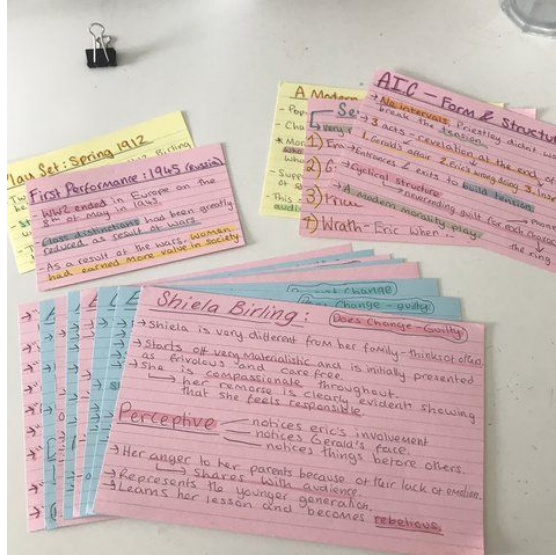 Play Set: Spring 1912
Birling
First Performance: 1945 (Russia)
WW2 ended in Europe on the
8th of May in 1945.
Class distinctions had been greatly
reduced as result of wars.
- As a result of the wars, women
had earned more value in society
A Modern
- Pop
- Cha
Se
very
1) Env
2) G
3) Price
7) Wrath - Eric when
AIC - Form & Structu
→ No intervals, Priestley didn't w
break the tension.
→ 3 acts - revelation at the end of
1. Gerald's affair 2. Eric's wrong doing 3.
→ Entrances & exits to build tension
→ Cyclical structure
neverending guilt for each
→ A modern morality play
the ring
Change
Does Change - guilty
Shiela Birling:
Does Change - Guilty
→ Shiela is very different from her family - thinks of others.
→ Starts off very materialistic and is initially presented
as frivolous and care free.
→ She is compassionate throughout.
↳ her remorse is clearly evident showing
that she feels responsible.
Perceptive
notices eric's involvement
notices Gerald's face.
notices things before others.
→ Her anger to her parents because of their lack of emotion.
↳ Shares with audience.
→ Represents the younger generation.
→ Learns her lesson and becomes rebelious.